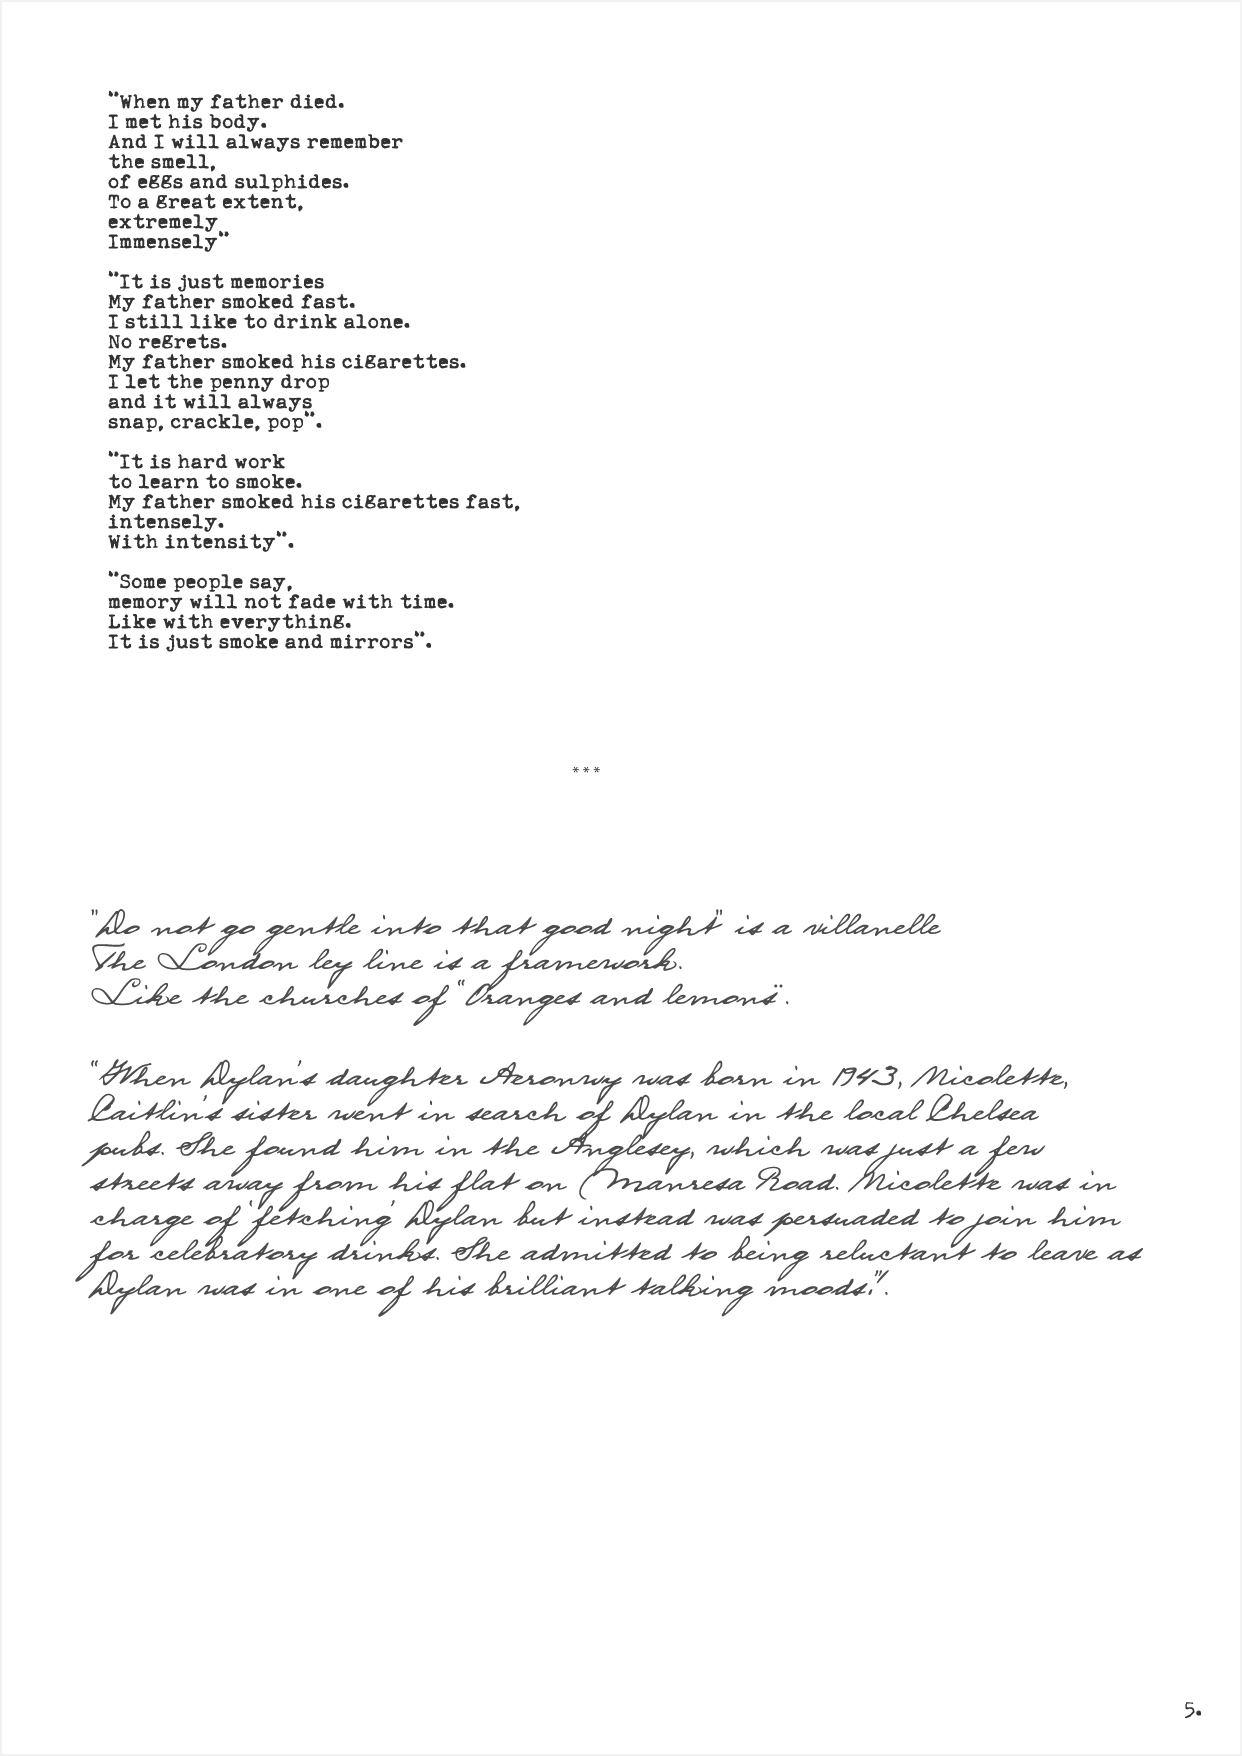 "When my father died.
I met his body.
And I will always remember
the smell,
of eggs and sulphides.
To a great extent,
extremely
Immensely"
"It is just memories
My father smoked fast.
I still like to drink alone.
No regrets.
My father smoked his cigarettes.
I let the penny drop
and it will always
snap, crackle, pop".
"It is hard work
to learn to smoke.
My father smoked his cigarettes fast,
intensely.
With intensity".
"Some people say,
memory will not fade with time.
Like with everything.
It is just smoke and mirrors".
***
"Do not go gentle into that good night" is a villanelle
The London ley line is a framework.
Like the churches of "Oranges and lemons".
"When Dylan's daughter Aeronwy was born in 1943, Nicolette,
Caitlin's sister went in search of Dylan in the local Chelsea
pubs. She found him in the Anglesey, which was just a few
streets away from his flat on Manresa Road. Nicolette was in
charge of 'fetching' Dylan but instead was persuaded to join him
for celebratory drinks. She admitted to being reluctant to leave as
Dylan was in one of his brilliant talking moods.".
5.